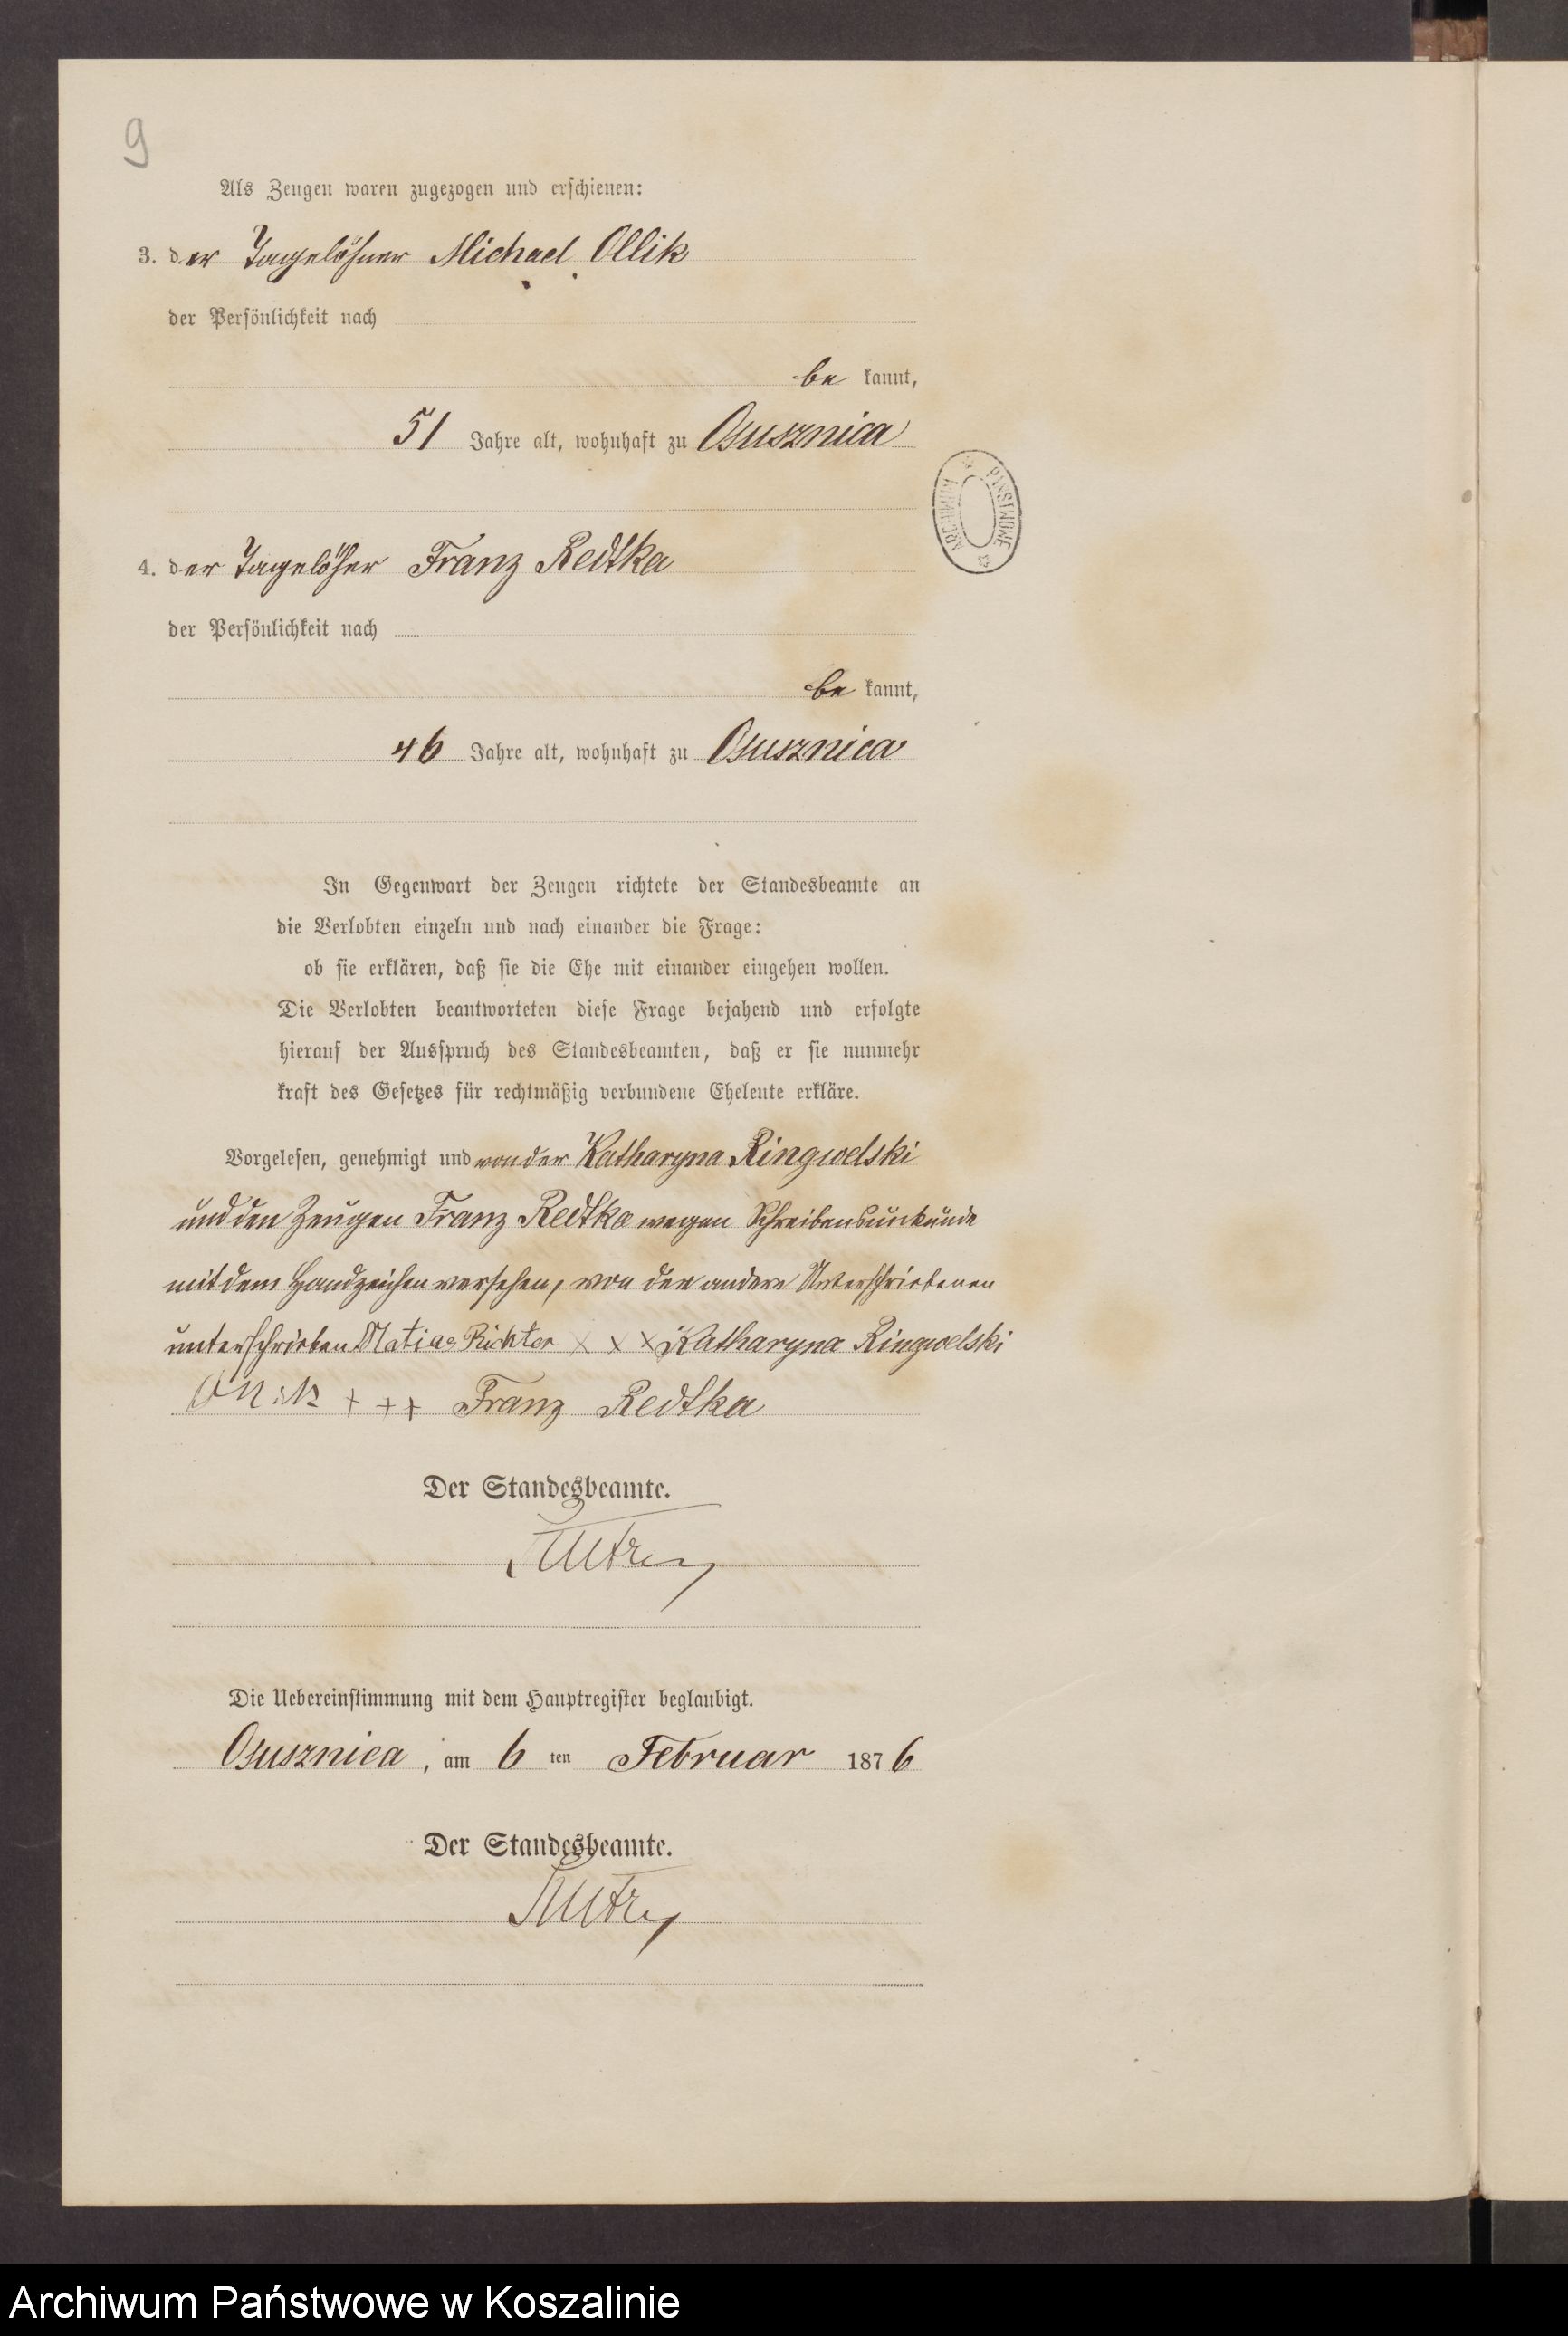 9
Als Zeugen waren zugezogen und erschienen:
3. der Tagelöhner Michael Ollik
der Persönlichkeit nach
be kannt,
51 Jahre alt, wohnhaft zu Osusznica
4. der Tagelöher Franz Redtka
der Persönlichkeit nach
be kannt,
46 Jahre alt, wohnhaft zu Osusznica
ARCHIWUM PAŃSTWOWE
In Gegenwart der Zeugen richtete der Standesbeamte an
die Verlobten einzeln und nach einander die Frage:
ob sie erklären, daß sie die Ehe mit einander eingehen wollen.
Die Verlobten beantworteten diese Frage bejahend und erfolgte
hierauf der Ausspruch des Standesbeamten, daß er sie nunmehr
kraft des Gesetzes für rechtmäßig verbundene Eheleute erkläre.
Vorgelesen, genehmigt und von der Katharyna Ringwelski
und den Zeugen Franz Redtka wegen Schreibensunkunde
mit dem Handzeichen versehen, von den andern Unterschriebenen
unterschrieben Matias Richter x x x Katharyna Ringwelski
Ollik + + + Franz Redtka
Der Standesbeamte.
Die Uebereinstimmung mit dem Hauptregister beglaubigt.
Osusznica, am 6 ten Februar 1876
Der Standesbeamte.
Archiwum Państwowe w Koszalinie